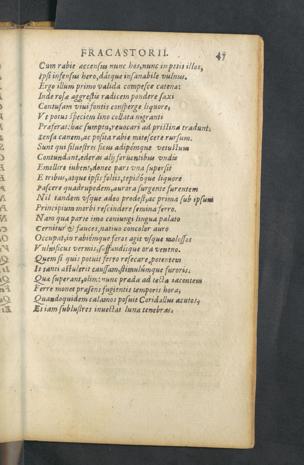 FRACASTORII. 47
Cum rabie accensus nunc hos, nunc impetit illos,
Ipsi infensus hero, dásque insanabile vulnus.
Ergo illum primo valida compesce catena:
Inde rosæ agrestis radicem pondere saxi
Contusam vivi fontis consperge liquore,
Ut potus speciem lino collata nigranti
Præferat: hac sumpta, revocari ad pristina tradunt,
Sensa canem, ac posita rabie mitescere rursum.
Sunt qui silvestres ficus adipémque vetustum
Contundant, ederas alij ferventibus undis
Emollire iubent, donec pars una supersit
E tribus, atque ipsis foliis, tepidóque liquore
Pascere quadrupedem, aurora surgente furentem
Nil tandem usque adeo prodest, ac prima sub ipsum
Principium morbi rescindere semina ferro.
Nam qua parte imo coniungi lingua palato
Cernitur & fauces, nativo concolor auro
Occupat, in rabiémque feras agit usque molossos
Vulnificus vermis, suffundítque ora veneno.
Quem si quis potuit ferro resecare, potentem
Is sanè abstulerit caussam, stimulúmque furoris.
Qua superant, olim: nunc præda ad tecta iacentem
Ferre monet præsens fugientis temporis hora,
Quandoquidem calamos posuit Coridallus acutos,
Et iam sublustres invectat luna tenebras.